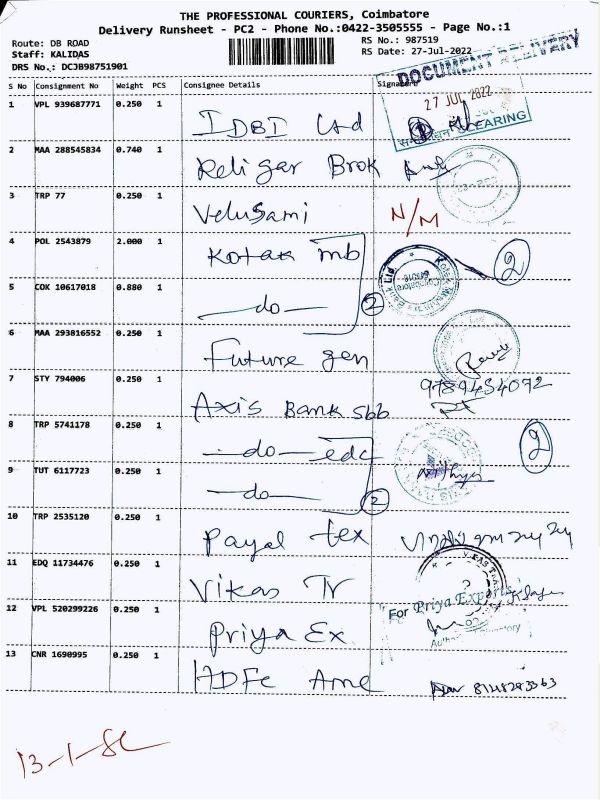 THE PROFESSIONAL COURIERS, Coimbatore
Delivery Runsheet - PC2 - Phone No.:0422-3505555 - Page No.:1
Route: DB ROAD
Staff: KALIDAS
DRS No.: DCJB98751901
RS No.: 987519
RS Date: 27-Jul-2022
DOCUMENT DELIVERY
27 JUL 2022
CLEARING
S No Consignment No Weight PCS Consignee Details Signature
1 VPL 939687771 0.250 1 IDBI Ltd
2 MAA 288545834 0.740 1 Religar Brok
3 TRP 77 0.250 1 Velusami N/M
4 POL 2543879 2.000 1 Kotak mb 2
5 COK 10617018 0.880 1 —do— 2
6 MAA 293816552 0.250 1 Future gen
7 STY 794006 0.250 1 Axis Bank sbb 9789434072
8 TRP 5741178 0.250 1 —do— edc 2
9 TUT 6117723 0.250 1 —do— 2
10 TRP 2535120 0.250 1 Payal tex
11 EDQ 11734476 0.250 1 Vikas Tr
12 VPL 520299226 0.250 1 Priya Ex For Priya Exports
13 CNR 1690995 0.250 1 HDFc Ame
13-1-8c